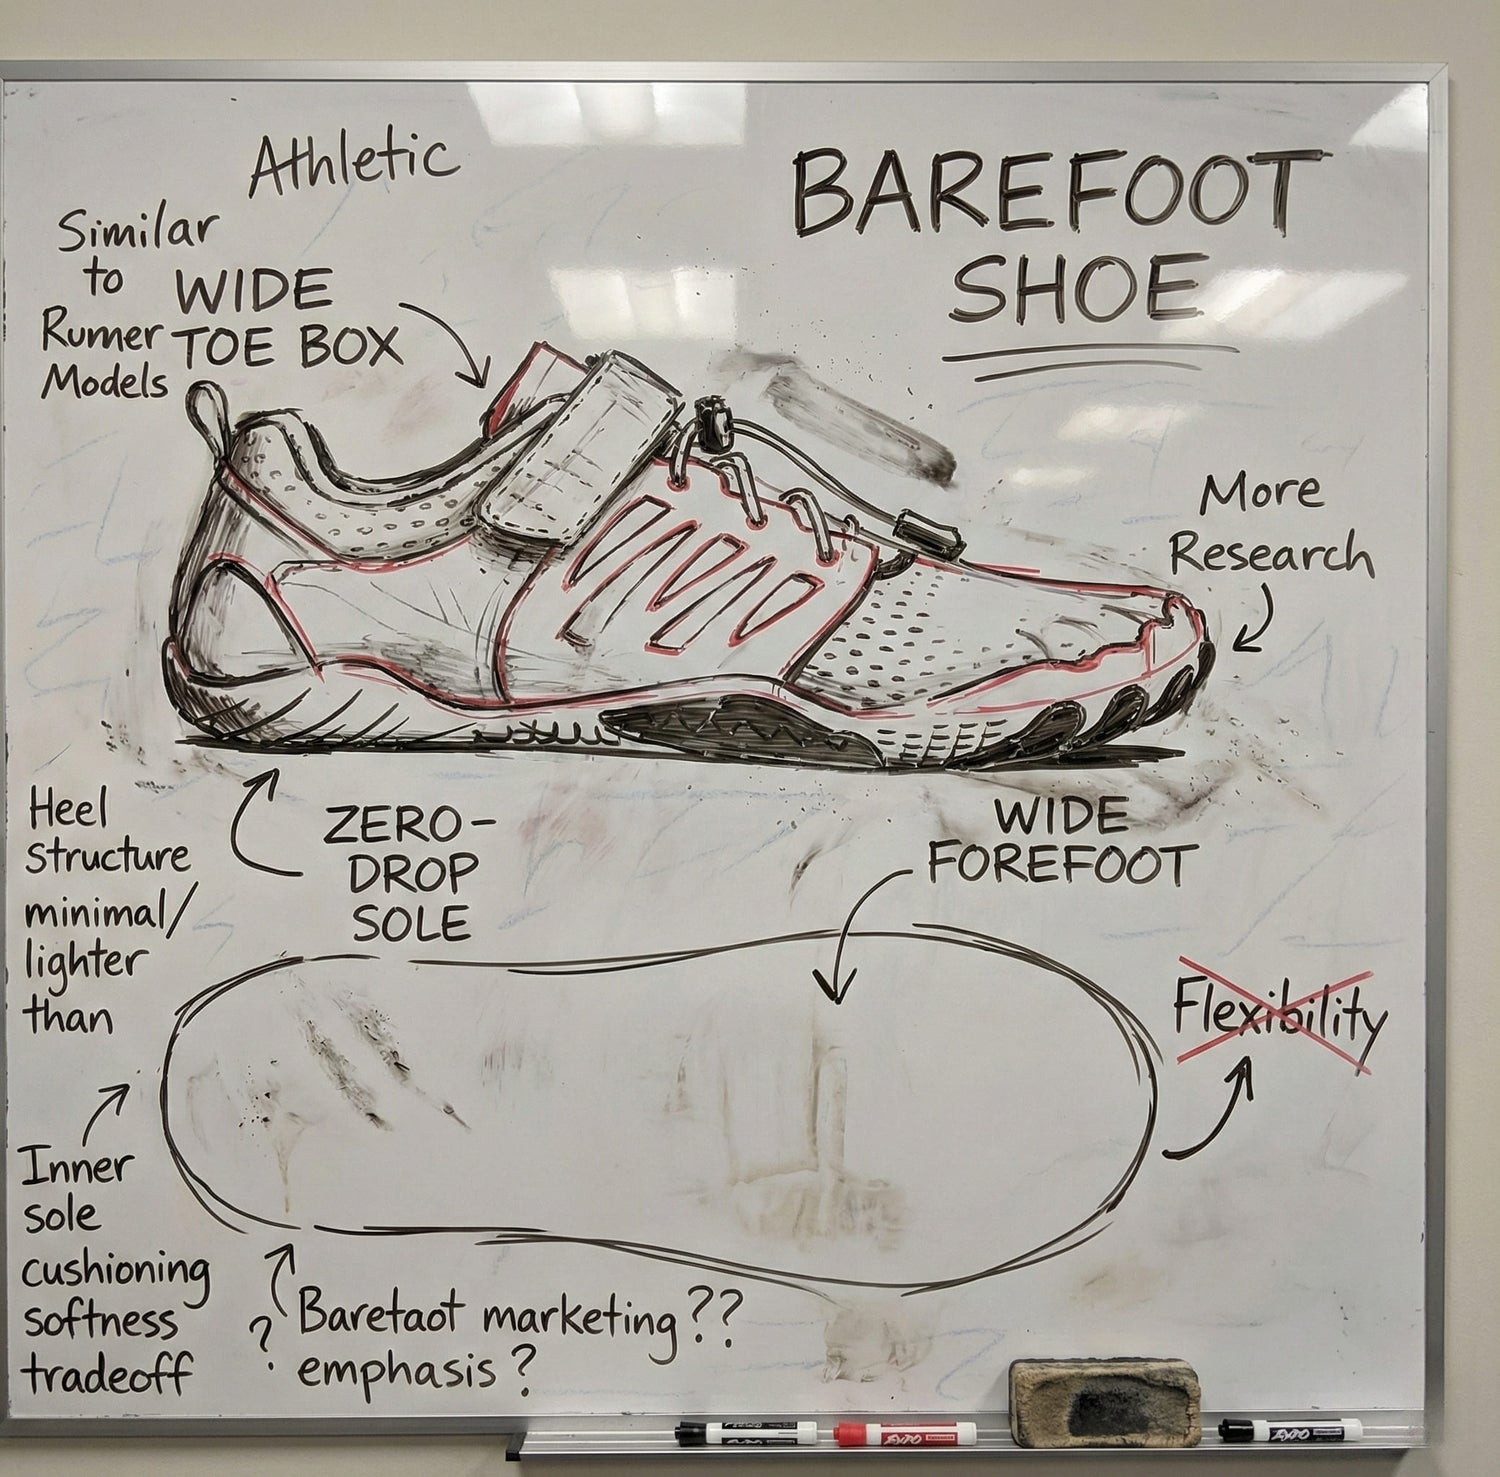 Athletic
BAREFOOT
SHOE
Similar
to
Rumer
Models
WIDE
TOE BOX
More
Research
Heel
structure
minimal/
lighter
than
ZERO-
DROP
SOLE
WIDE
FOREFOOT
Flexibility
Inner
sole
cushioning
softness
tradeoff
?
Baretaot marketing??
emphasis?
EXPO
EXPO